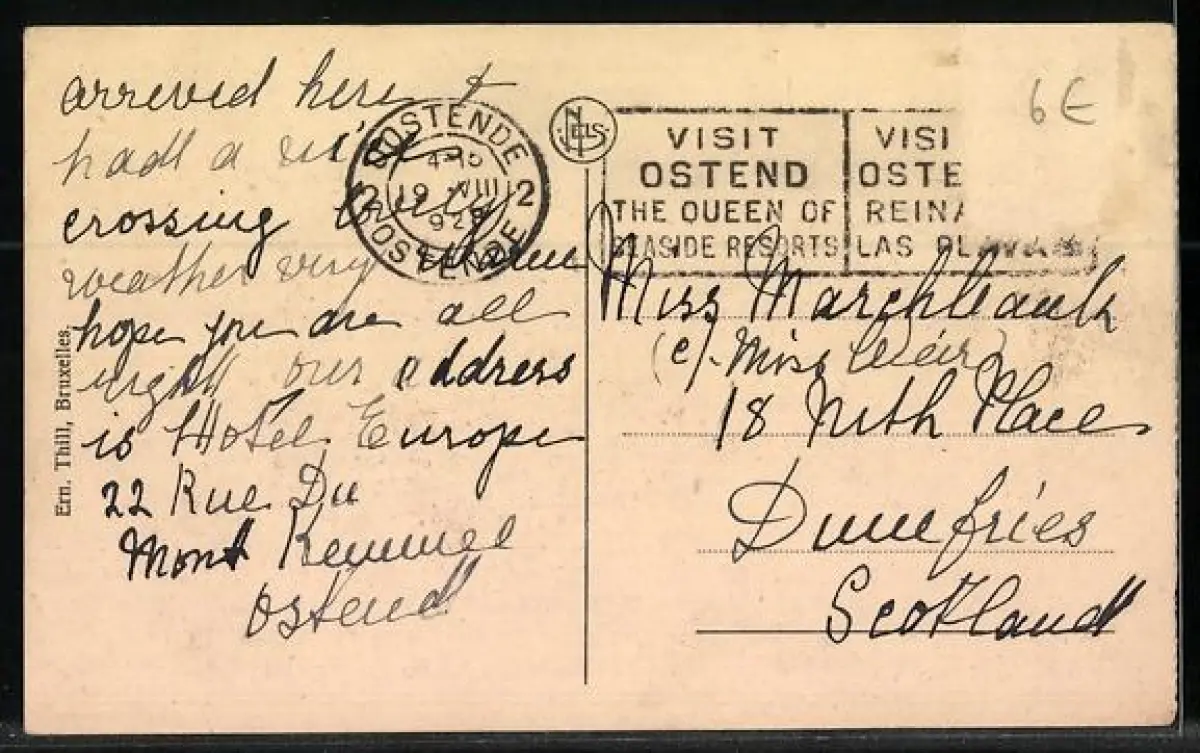 arrived here &
hadd a nice
crossing
weather very
hope you are all
right our address
is Hotel Europe
22 Rue Du
Mont Kemmel
Ostend
Ern. Thill, Bruxelles.
OOSTENDE
2 19 VIII 2
OSTENDE
NELS
VISIT
OSTEND
THE QUEEN OF
SEASIDE RESORTS
VISI
OSTE
REINA
LAS PLAYAS
6E
Miss Marchbank
(c/. Miss Weir)
18 Nith Place
Dumfries
Scotland